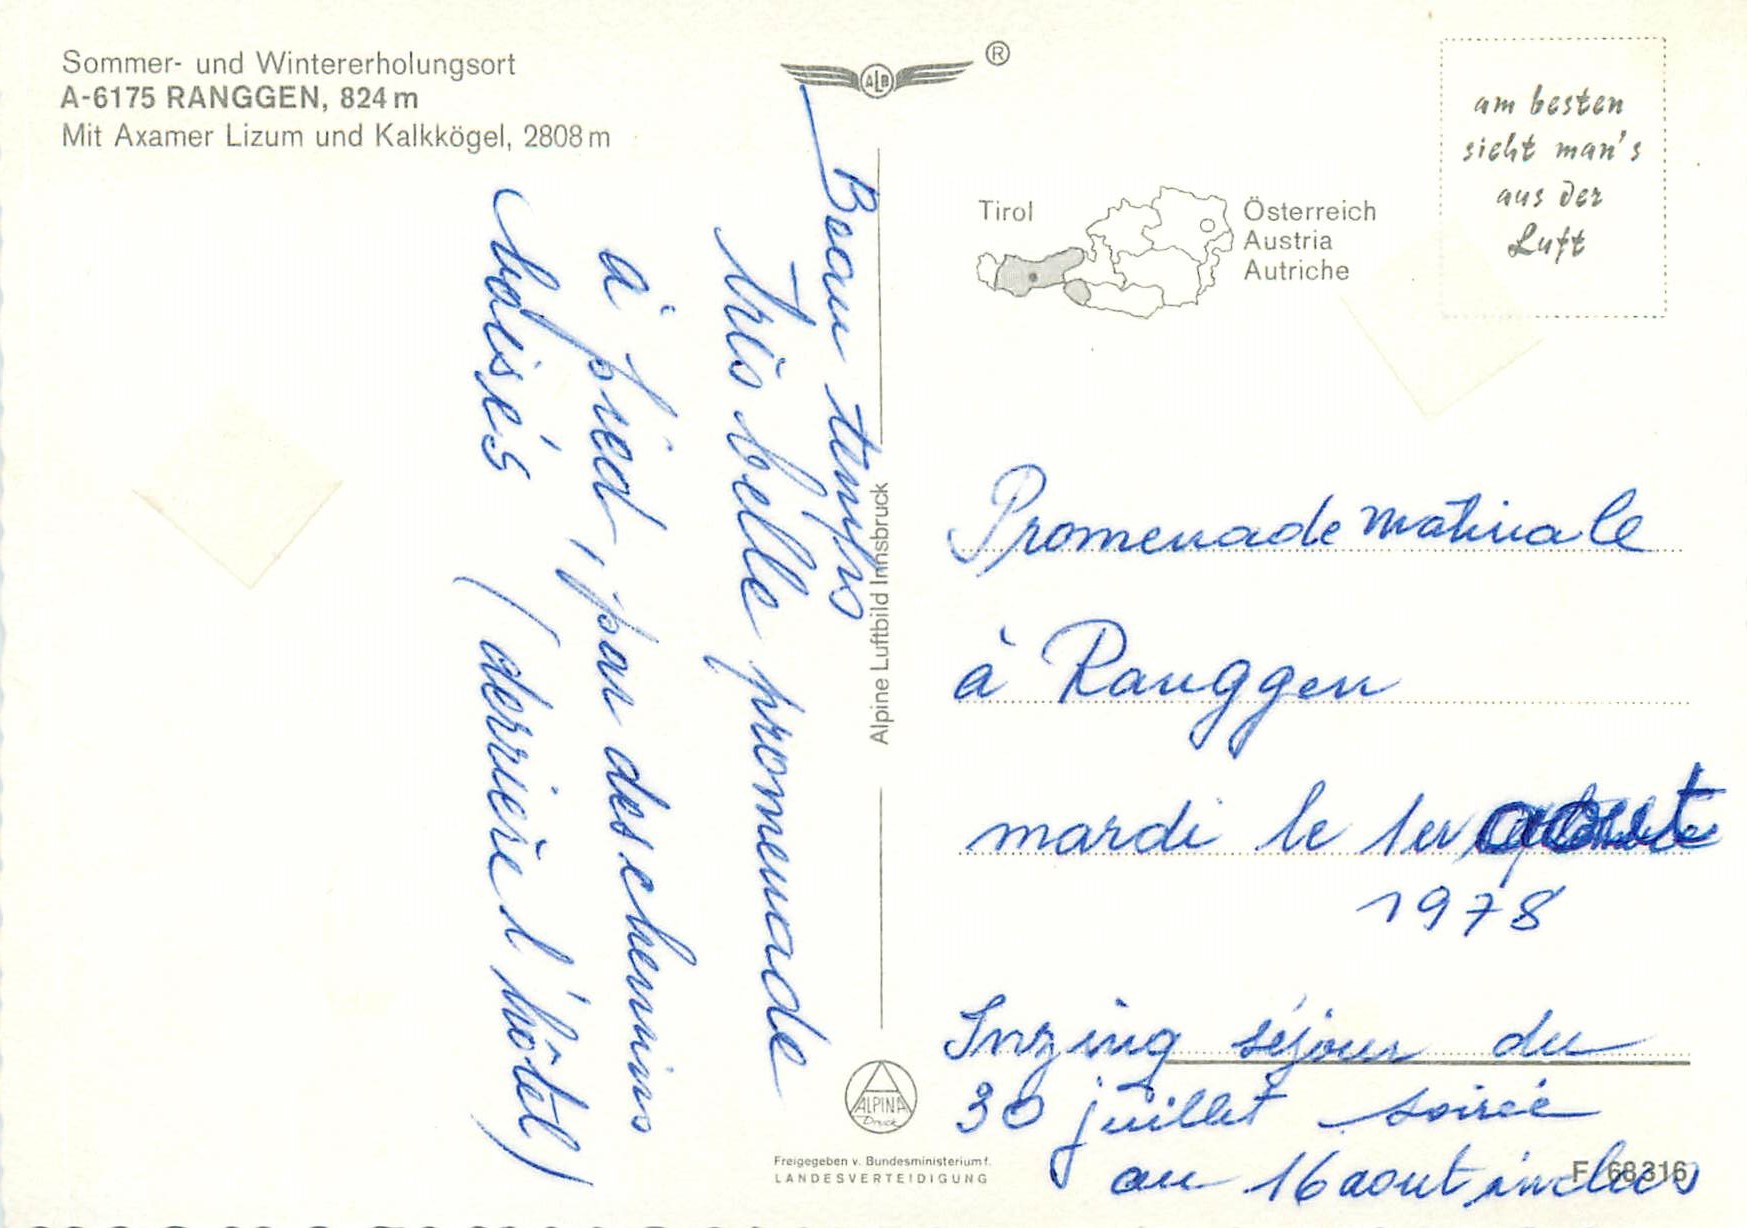 Sommer- und Wintererholungsort
A-6175 RANGGEN, 824 m
Mit Axamer Lizum und Kalkkögel, 2808 m
ALB
®
am besten
sieht man's
aus der
Luft
Tirol
Österreich
Austria
Autriche
Beau temps
très belle promenade
à pied, par des chemins
balisés (derrière l'hôtel)
Alpine Luftbild Innsbruck
Promenade matinale
à Ranggen
mardi le 1er aout
1978
Inzing séjour du
30 juillet soirée
au 16 aout inclus
ALPINA
Druck
Freigegeben v. Bundesministerium f.
LANDESVERTEIDIGUNG
F 68316